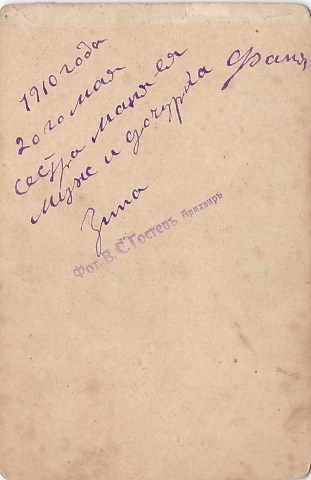 1910 года
20го мая
сестра Маня ея
муж и дочурка Фаня
Зина
Фот. В. С. Гостевъ Армавиръ